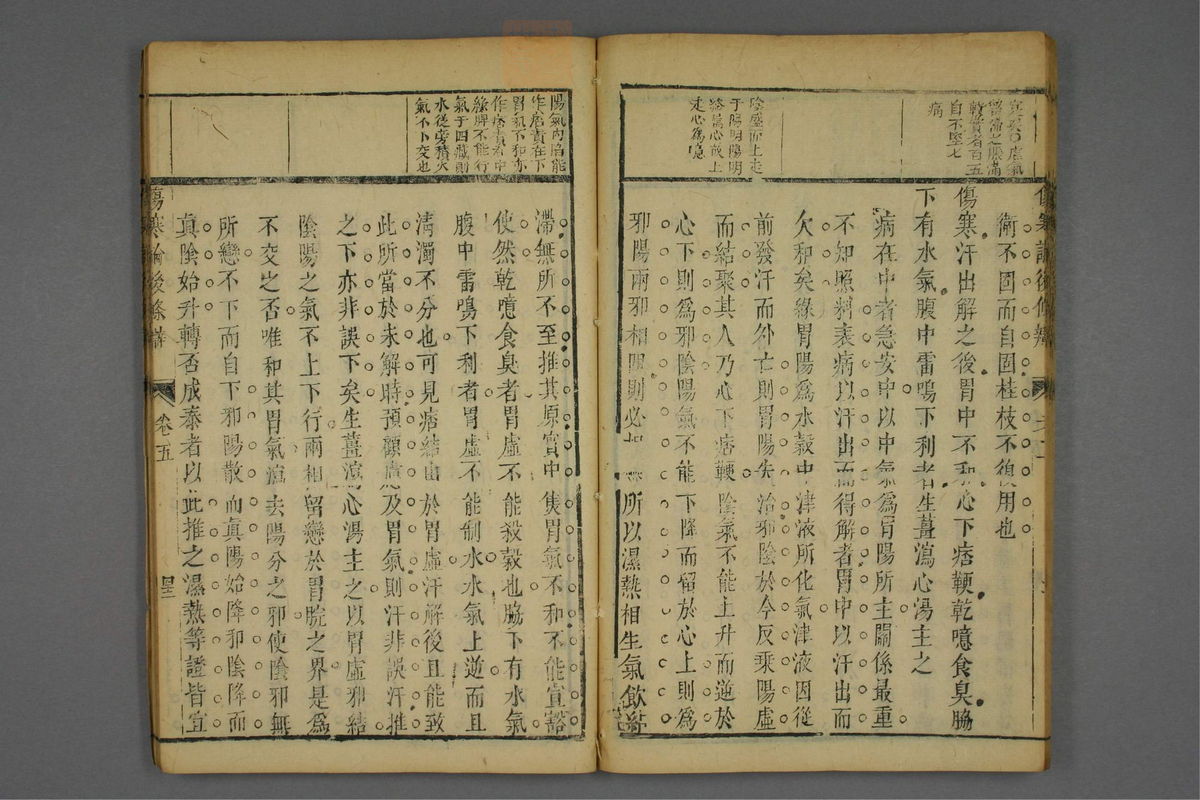 自不堅七
病
陰盛而上走
于陽明陽明
絡屬心故上
走心爲噫
衛不固而自固桂枝不復用也
傷寒汗出解之後胃中不和心下痞鞕乾噫食臭脇
下有水氣腹中雷鳴下利者生薑瀉心湯主之
病在中者急安中以中氣爲胃陽所主關係最重
不知照料表病以汗出而得解者胃中以汗出而
欠和矣緣胃陽爲水穀中津液所化氣津液因從
前發汗而外亡則胃陽失治邪陰於今反乘陽虛
而結聚其人乃心下痞鞕陰氣不能上升而逆於
心下則爲邪陰陽氣不能下降而留於心上則爲
邪陽兩邪相 則必 所以濕熱相生氣飲
陽氣內陷能
作痞責在下
胃氣下和亦
作痞責在中
緣脾不能行
氣于四藏則
水從旁積火
氣不下交也
滯無所不至推其原實中焦胃氣不和不能宣豁
使然乾噫食臭者胃虛不能殺穀也脇下有水氣
腹中雷鳴下利者胃虛不能制水水氣上逆而且
清濁不分也可見痞結由於胃虛汗解後且能致
此所當於未解時預顧慮及胃氣則汗非誤汗推
之下亦非誤下矣生薑瀉心湯主之以胃虛邪結
陰陽之氣不上下行兩相留戀於胃脘之界是爲
不交之否唯和其胃氣瀉去陽分之邪使陰邪無
所戀不下而自下邪陽散而真陽始降邪陰降而
真陰始升轉否成泰者以此推之濕熱等證皆宜
傷寒論後條辨
卷五